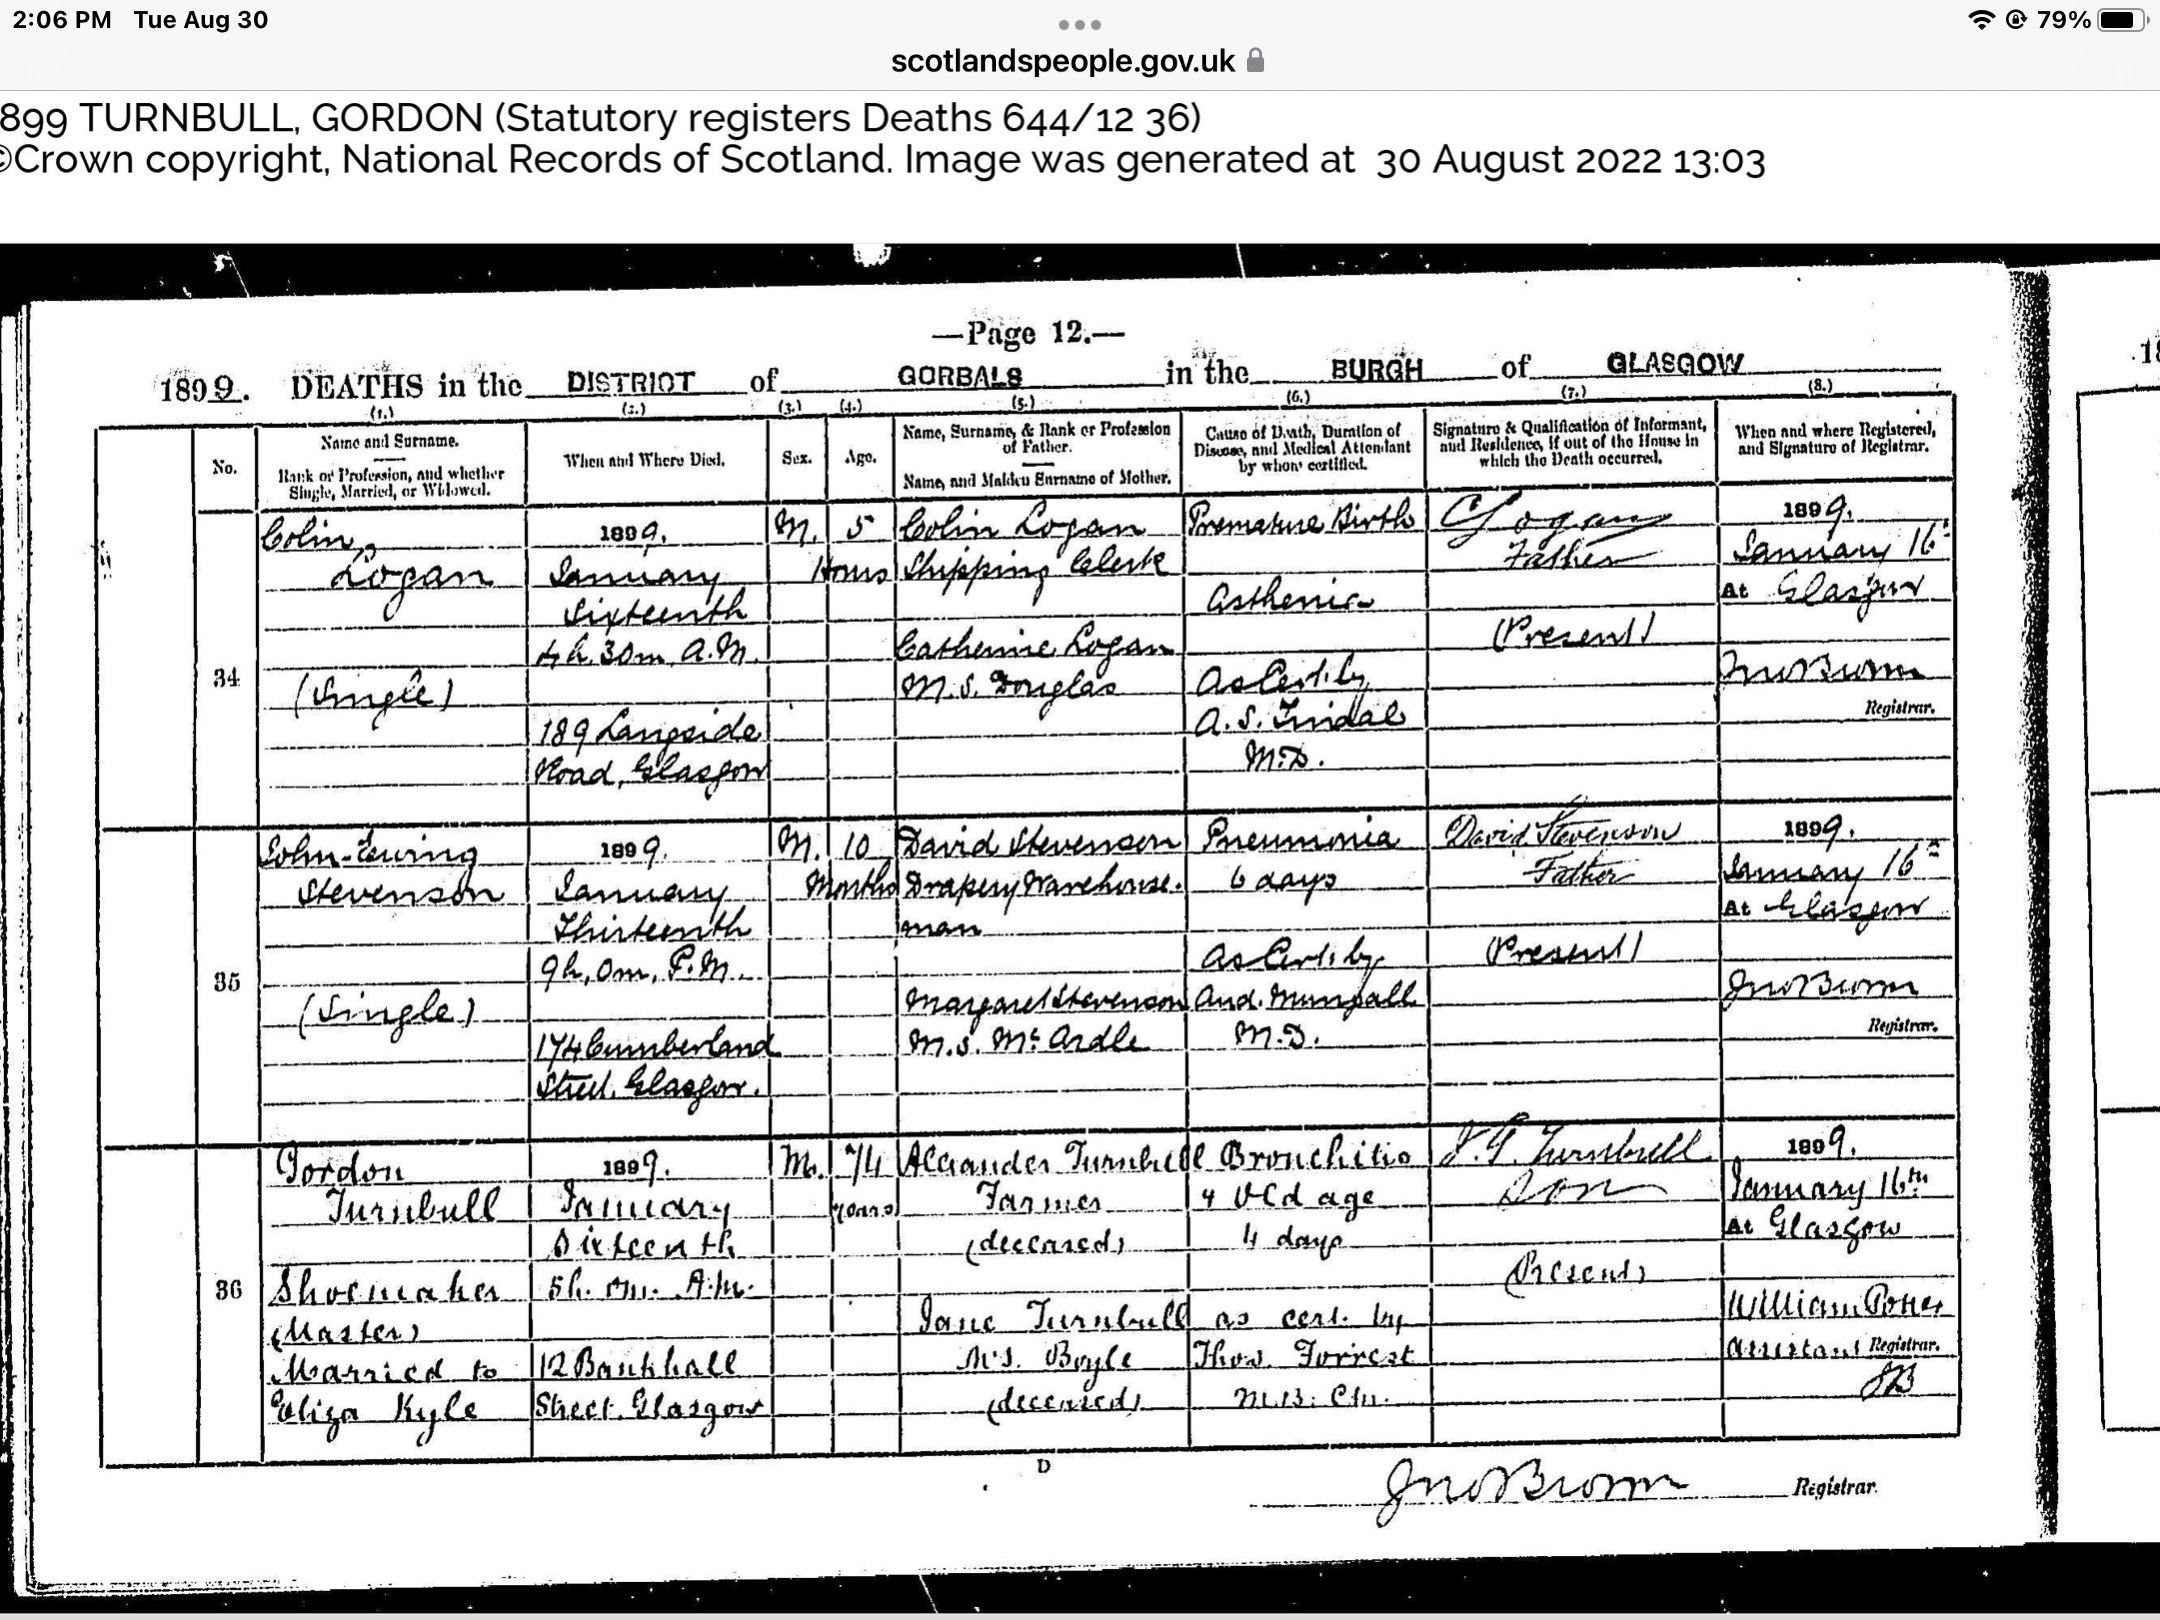 2:06 PM Tue Aug 30
79%
scotlandspeople.gov.uk
899 TURNBULL, GORDON (Statutory registers Deaths 644/12 36)
©Crown copyright, National Records of Scotland. Image was generated at 30 August 2022 13:03
—Page 12.—
1899. DEATHS in the DISTRICT of GORBALS in the BURGH of GLASGOW
(1.) (2.) (3.) (4.) (5.) (6.) (7.) (8.)
No.
Name and Surname.
Rank or Profession, and whether
Single, Married, or Widowed.
When and Where Died.
Sex.
Age.
Name, Surname, & Rank or Profession
of Father.
Name, and Maiden Surname of Mother.
Cause of Death, Duration of
Disease, and Medical Attendant
by whom certified.
Signature & Qualification of Informant,
and Residence, if out of the House in
which the Death occurred.
When and where Registered,
and Signature of Registrar.
34
Colin
Logan
(Single)
1899.
January
Sixteenth
4h. 30m. A.M.
189 Langside
Road, Glasgow
M.
5
Hours
Colin Logan
Shipping Clerk
Catherine Logan
M.S. Douglas
Premature Birth
Asthenia
As Cert. by
A. S. Tindal
M.D.
C Logan
Father
(Present)
1899.
January 16th
At Glasgow
Jno Brown
Registrar.
35
John Ewing
Stevenson
(Single)
1899.
January
Thirteenth
9h. 0m. P.M.
174 Cumberland
Street, Glasgow.
M.
10
Months
David Stevenson
Drapery Warehouse-
man
Margaret Stevenson
M.S. McArdle
Pneumonia
6 days
As Cert. by
And. Mungall
M.D.
David Stevenson
Father
(Present)
1899.
January 16th
At Glasgow
Jno Brown
Registrar.
36
Gordon
Turnbull
Shoemaker
(Master)
Married to
Eliza Kyle
1899.
January
Sixteenth
5h. 0m. A.M.
12 Bankhall
Street, Glasgow
M.
74
years
Alexander Turnbull
Farmer
(deceased)
Jane Turnbull
M.S. Boyle
(deceased)
Bronchitis
& Old age
4 days
as cert. by
Thos. Forrest
M.B. C.M.
J. G. Turnbull
Son
(Present)
1899.
January 16th
At Glasgow
William Potter
Assistant Registrar.
JB
D
Jno Brown Registrar.